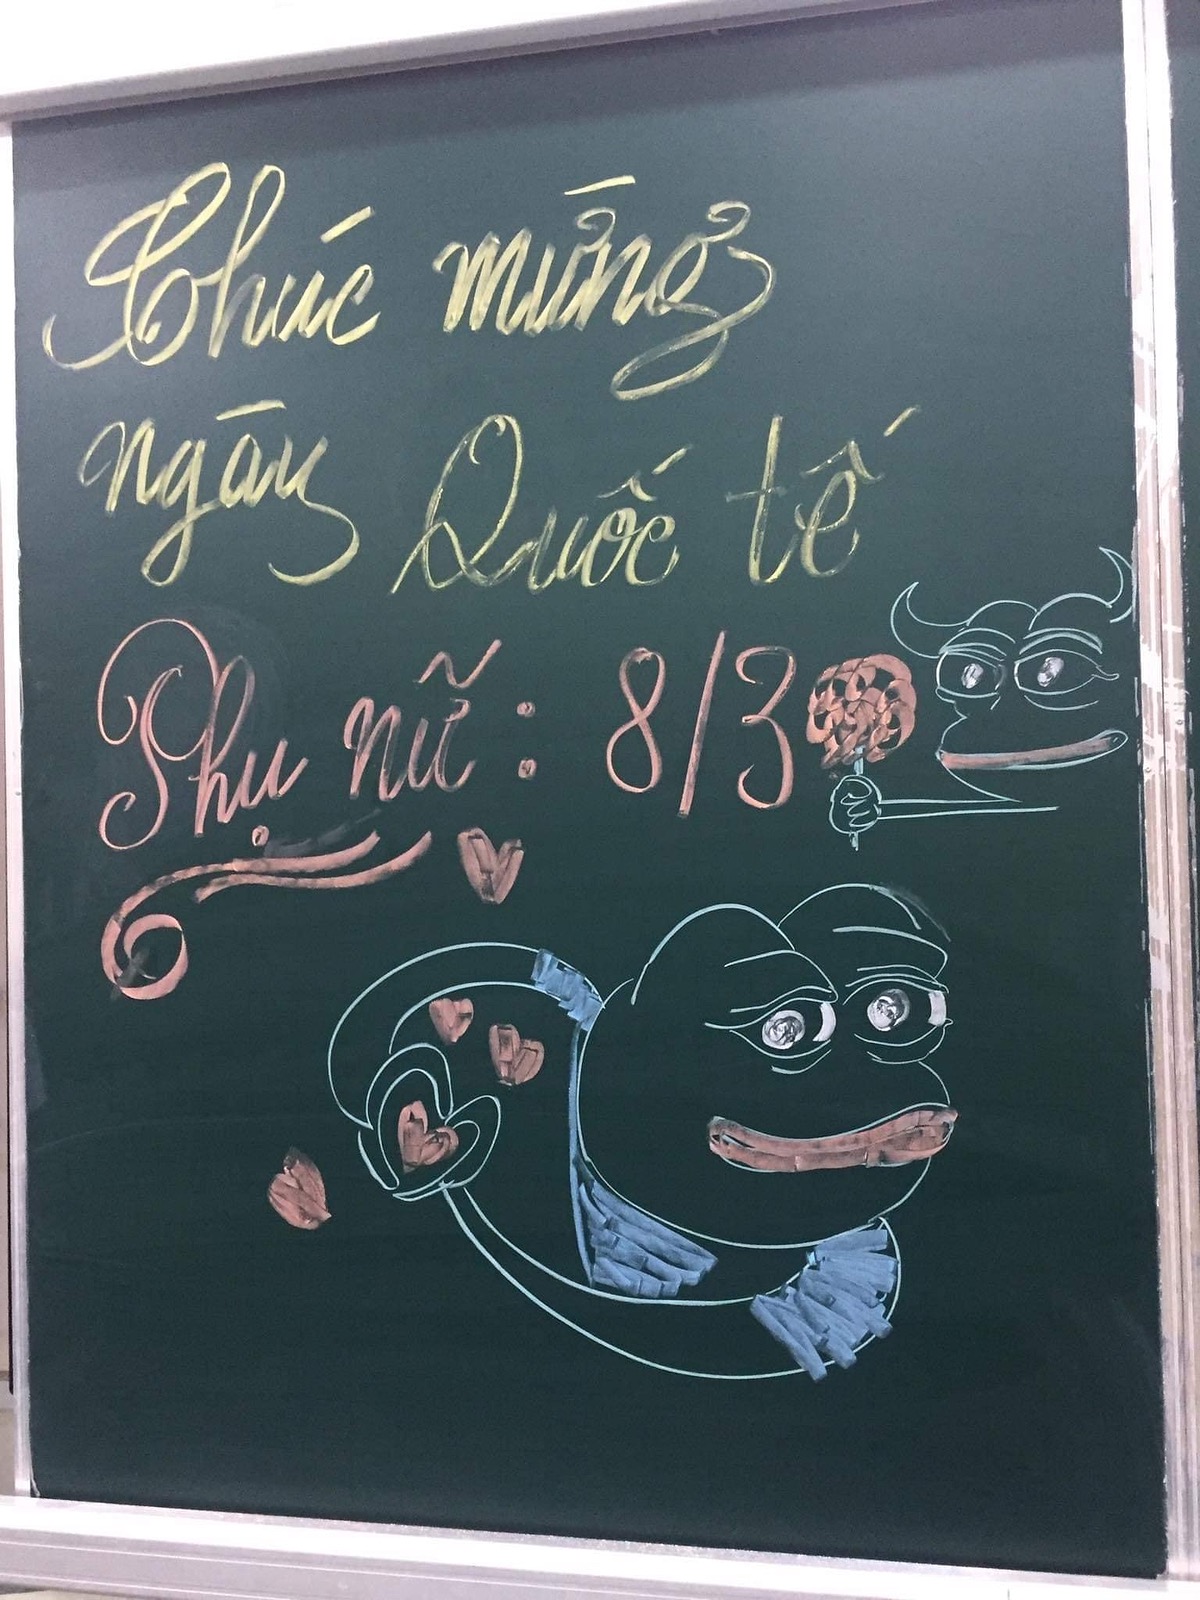 Chúc mừng
ngày Quốc tế
Phụ nữ : 8/3